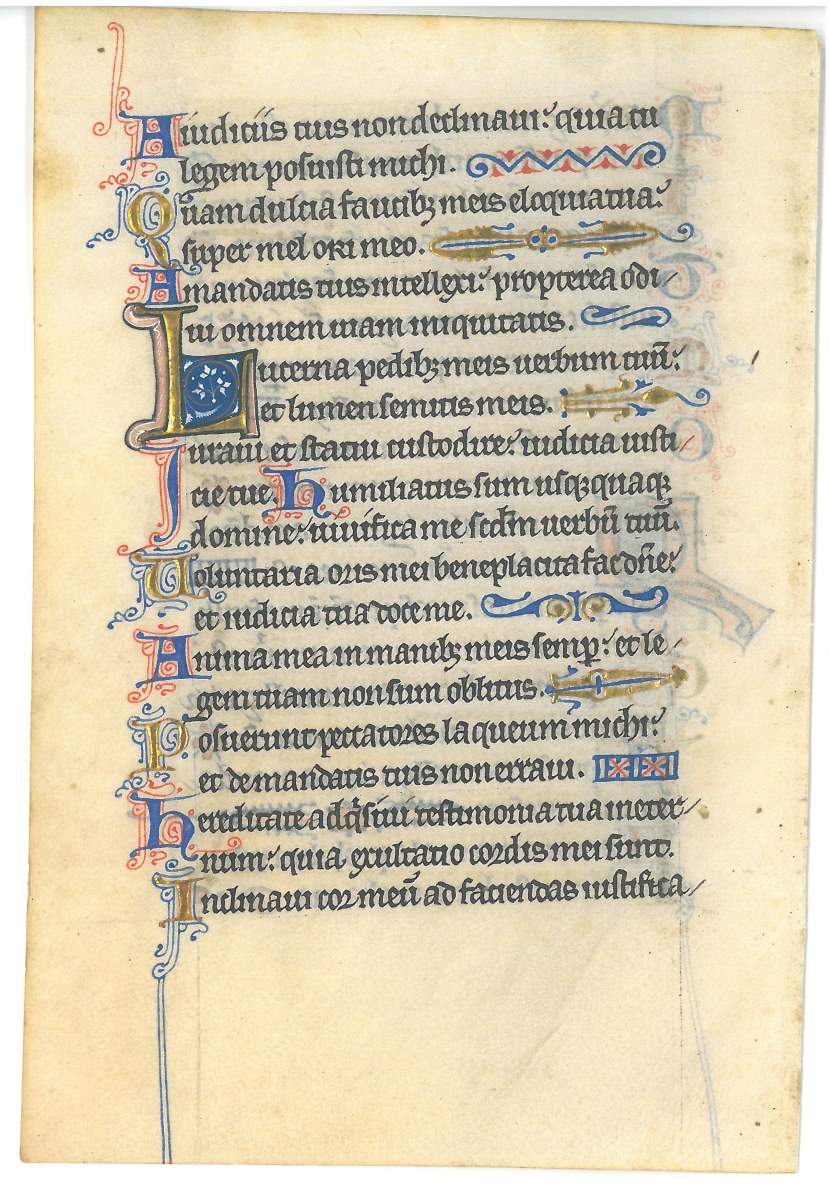 A iudiciis tuis non declinaui: quia tu
legem posuisti michi.
Quam dulcia faucibꝫ meis eloquia tua:
super mel ori meo.
A mandatis tuis intellexi: propterea odi/
ui omnem uiam iniquitatis.
Lucerna pedibꝫ meis uerbum tuū:
et lumen semitis meis.
Iuraui et statui custodire: iudicia iusti/
cie tue. Humiliatus sum usqꝫquaqꝫ
domine: uiuifica me scdm uerbū tuū.
Uoluntaria oris mei beneplacita fac dn̄e:
et iudicia tua doce me.
Anima mea in manibꝫ meis semꝑ: et le/
gem tuam non sum oblitus.
Posuerunt peccatores laqueum michi:
et de mandatis tuis non erraui.
Hereditate adqͥsiui testimonia tua in eter/
num: quia exultatio cordis mei sunt.
Inclinaui cor meū ad faciendas iustifica/